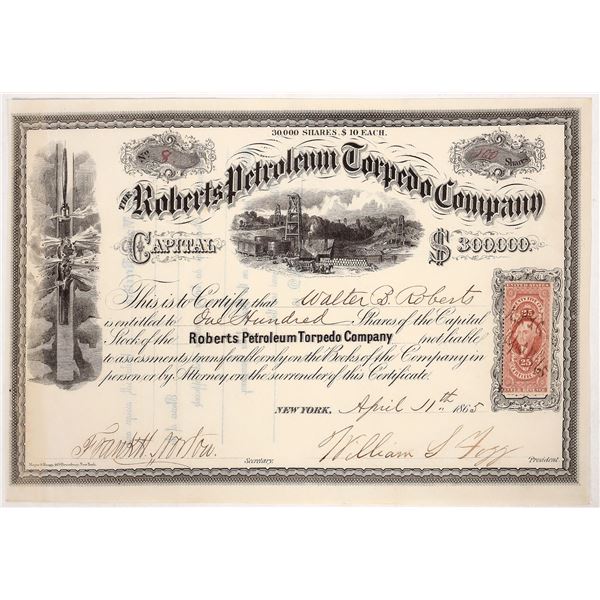 30000 SHARES, $ 10 EACH.
No. 8
100 Shares
THE Roberts Petroleum Torpedo Company
CAPITAL $ 300,000.
This is to Certify that Walter B. Roberts
is entitled to One Hundred Shares of the Capital
Stock of the Roberts Petroleum Torpedo Company not liable
to assessments, transferable only on the Books of the Company in
person or by Attorney on the surrender of this Certificate.
NEW YORK, April 11th 1865
Frank H. Norton William S Fogg
Secretary. President.
UNITED STATES
25 25
INTER. REVENUE